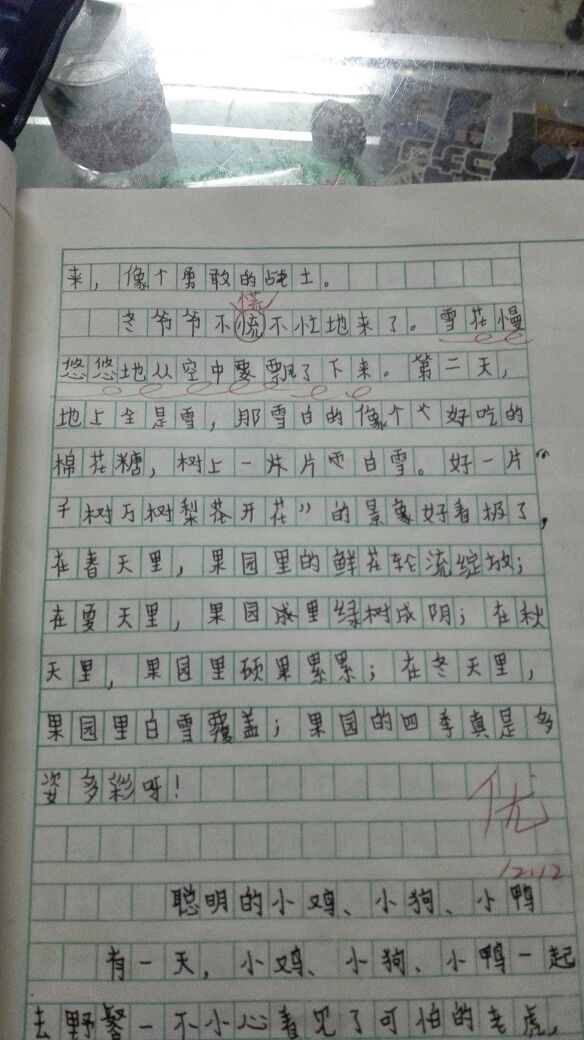 来，像个勇敢的战士。
慌
冬爷爷不慌不忙地来了。雪花慢
悠悠地从空中飘了下来。第二天，
地上全是雪，那雪白的像个个好吃的
棉花糖，树上一片片白雪。好一片“
千树万树梨花开花”的景象好看极了，
在春天里，果园里的鲜花轮流绽放；
在夏天里，果园里绿树成阴；在秋
天里，果园里硕果累累；在冬天里，
果园里白雪覆盖；果园的四季真是多
姿多彩呀！
优
12.12
聪明的小鸡、小狗、小鸭
有一天，小鸡、小狗、小鸭一起
去野餐一不小心看见了可怕的老虎，